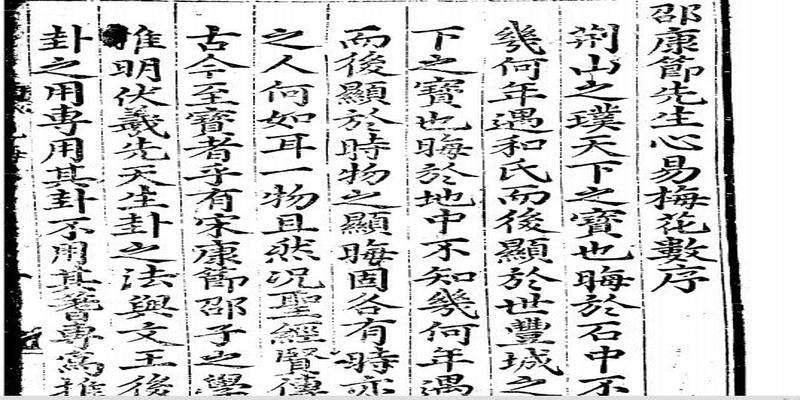 邵康節先生心易梅花數序
荆山之璞天下之寶也晦於石中不
幾何年遇和氏而後顯於世豐城之
下之寶也晦於地中不知幾何年遇
而後顯於時物之顯晦固各有時亦
之人何如耳一物且然况聖經賢傳
古今至寶者乎有宋康節邵子之學
推明伏羲先天生卦之法與文王後
卦之用専用其卦不用其蓍専爲推